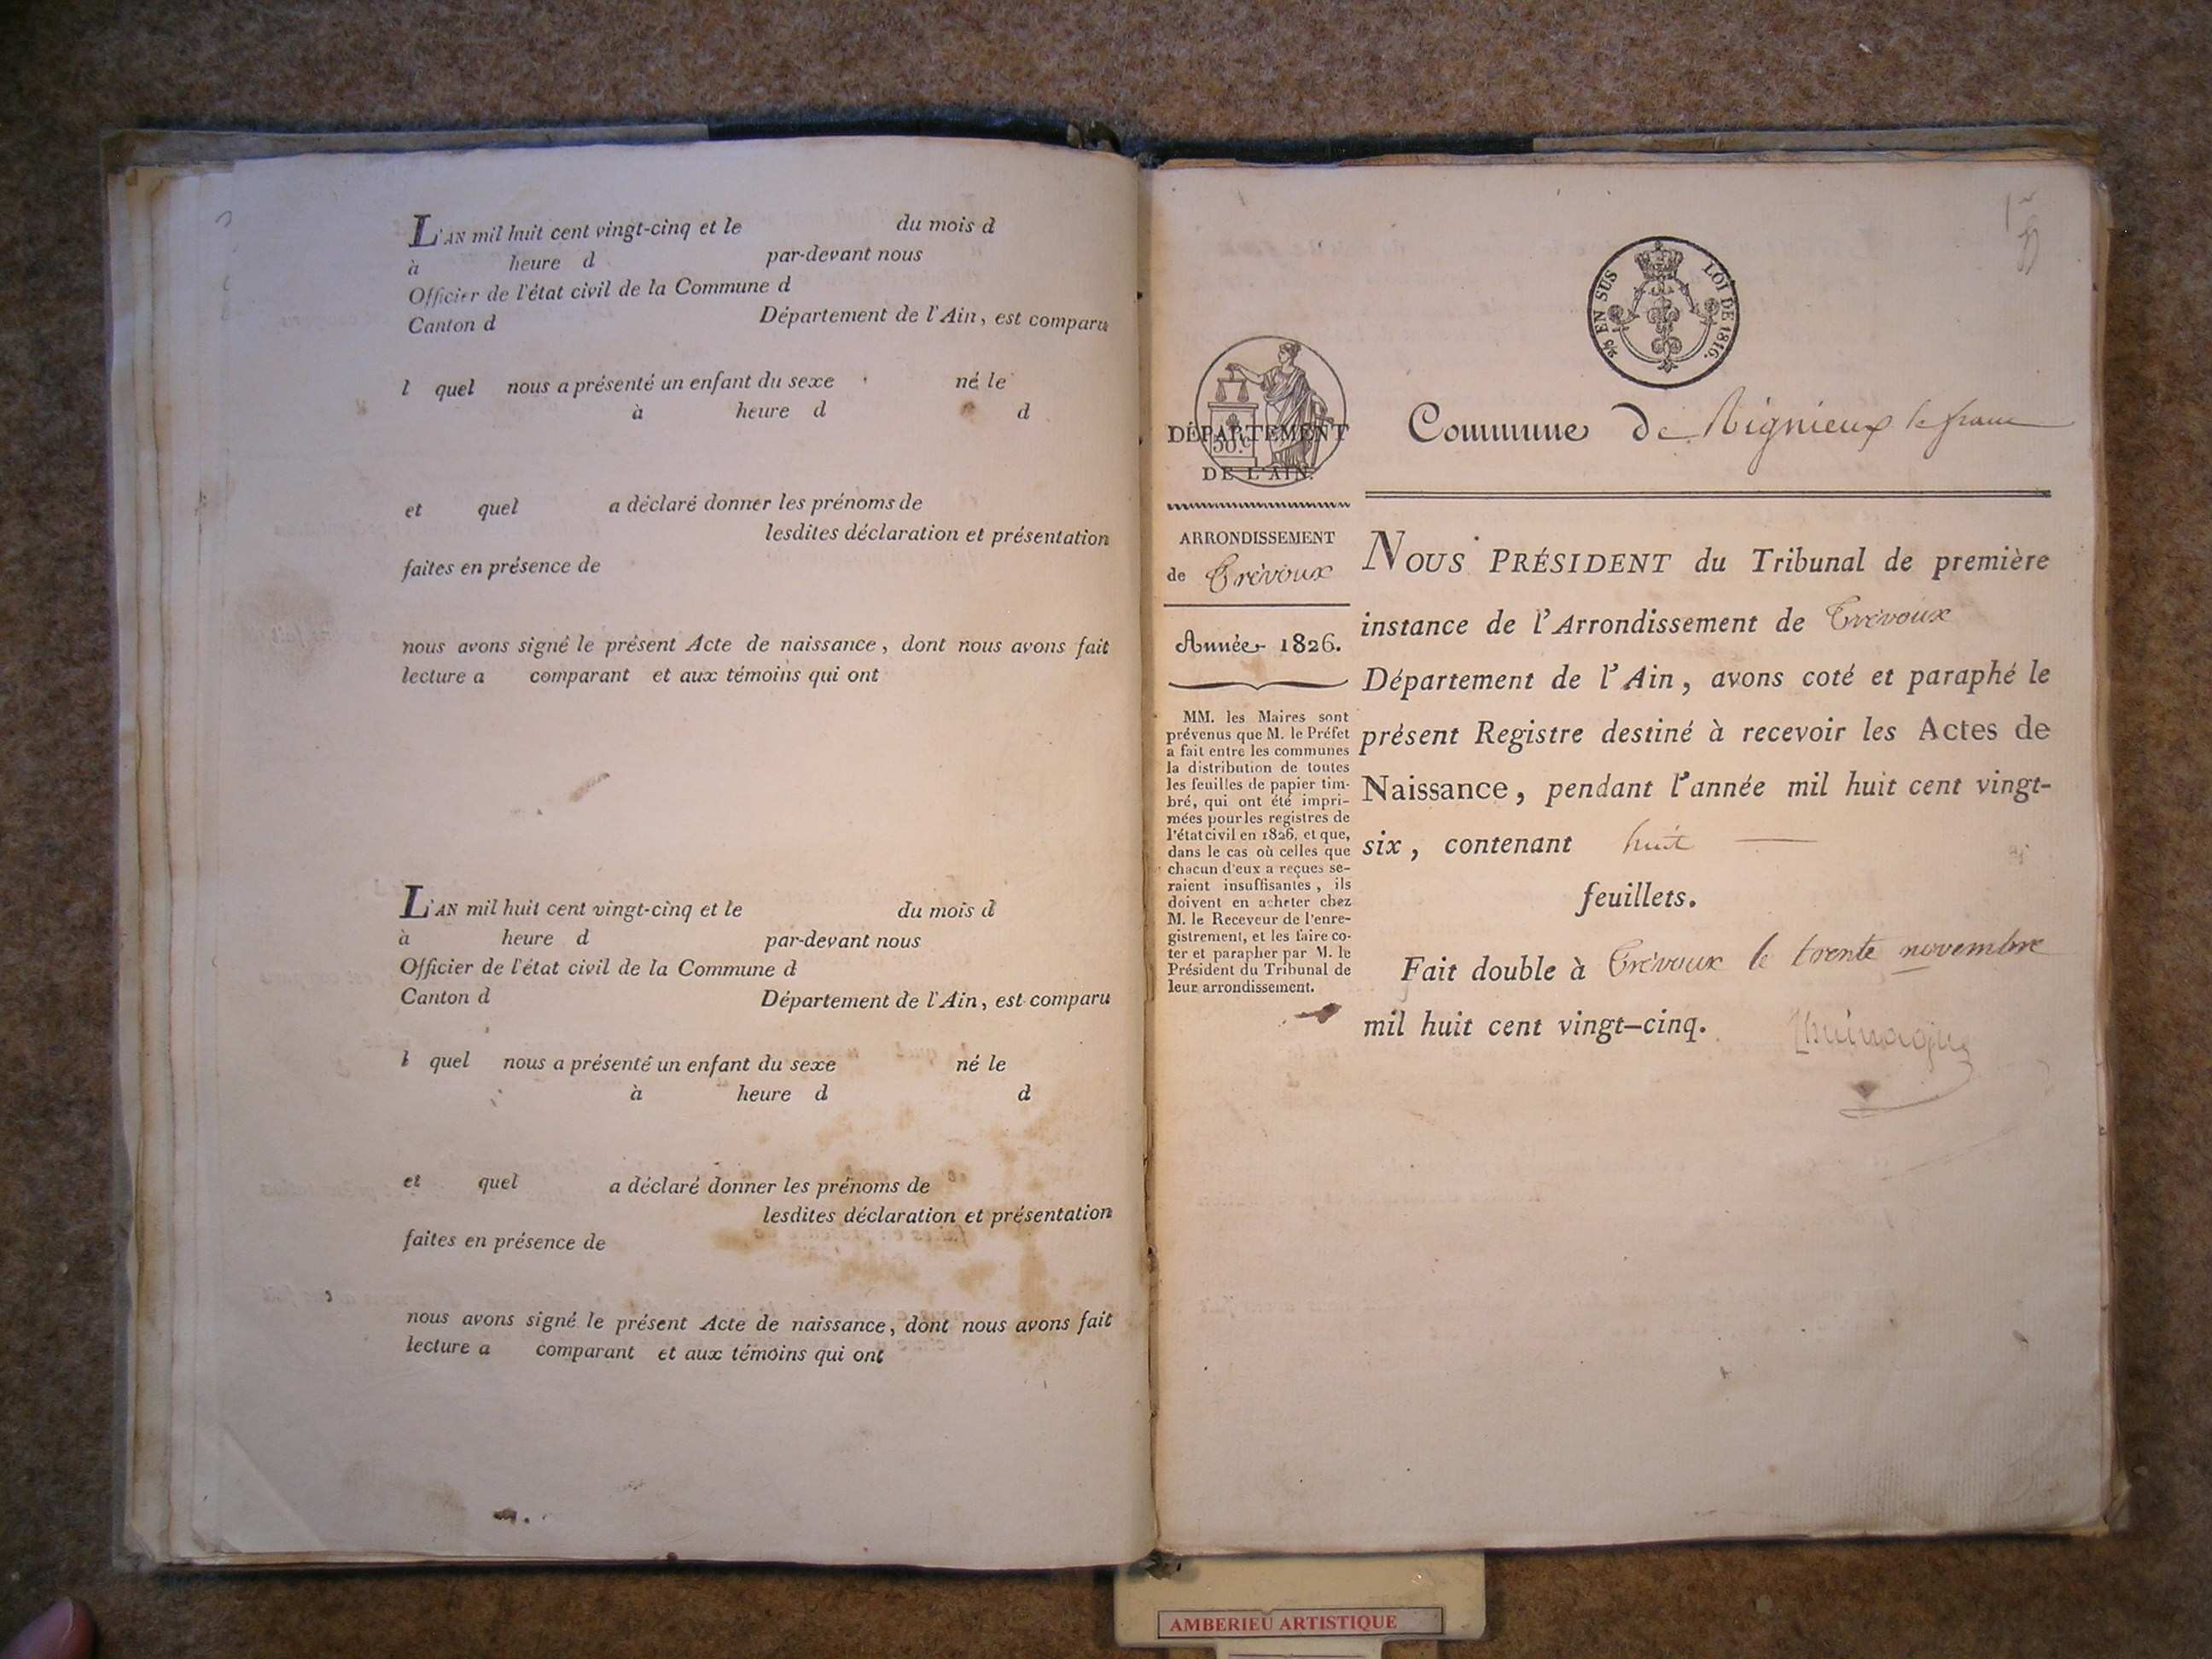 L'AN mil huit cent vingt-cinq et le du mois d
à heure d par-devant nous
Officier de l'état civil de la Commune d
Canton d Département de l'Ain, est comparu
l quel nous a présenté un enfant du sexe né le
à heure d d
et quel a déclaré donner les prénoms de
lesdites déclaration et présentation
faites en présence de
nous avons signé le présent Acte de naissance, dont nous avons fait
lecture a comparant et aux témoins qui ont
L'AN mil huit cent vingt-cinq et le du mois d
à heure d par-devant nous
Officier de l'état civil de la Commune d
Canton d Département de l'Ain, est comparu
l quel nous a présenté un enfant du sexe né le
à heure d d
et quel a déclaré donner les prénoms de
lesdites déclaration et présentation
faites en présence de
nous avons signé le présent Acte de naissance, dont nous avons fait
lecture a comparant et aux témoins qui ont
EN SUS LOI DE 1816.
DÉPARTEMENT
50.c
DE L'AIN.
ARRONDISSEMENT
de Trévoux
Année 1826.
MM. les Maires sont
prévenus que M. le Préfet
a fait entre les communes
la distribution de toutes
les feuilles de papier tim-
bré, qui ont été impri-
mées pour les registres de
l'état civil en 1826, et que,
dans le cas où celles que
chacun d'eux a reçues se-
raient insuffisantes, ils
doivent en acheter chez
M. le Receveur de l'enre-
gistrement, et les faire co-
ter et parapher par M. le
Président du Tribunal de
leur arrondissement.
Commune de Rignieux le franc
NOUS PRÉSIDENT du Tribunal de première
instance de l'Arrondissement de Trévoux
Département de l'Ain, avons coté et paraphé le
présent Registre destiné à recevoir les Actes de
Naissance, pendant l'année mil huit cent vingt-
six, contenant huit
feuillets.
Fait double à Trévoux le trente novembre
mil huit cent vingt-cinq.
AMBERIEU ARTISTIQUE